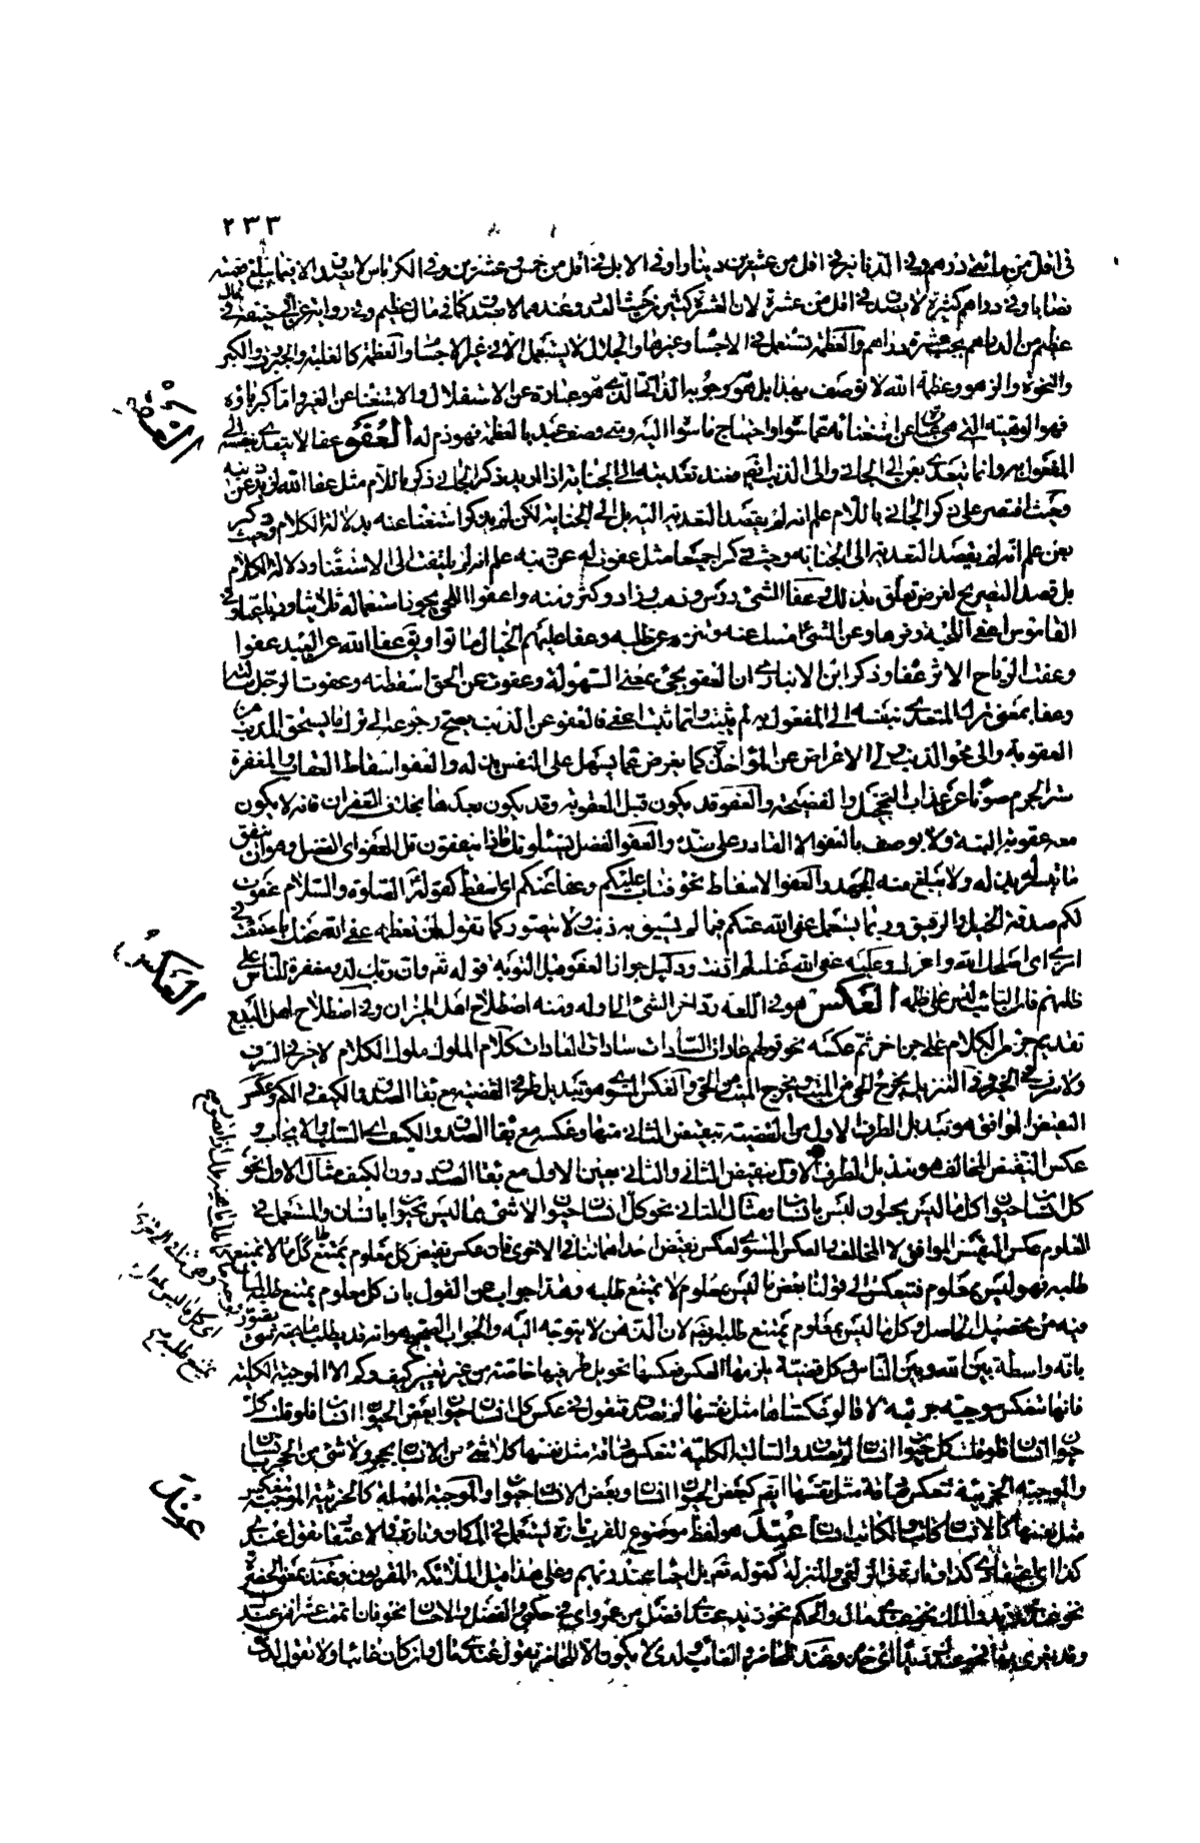 ٢٣٣
في اقل من مائتي درهم وفي الدنانير في اقل من عشرين دينارا وفي الابل في اقل من خمس وعشرين وفي الكرباس لا يصدق الا فيما يبلغ قيمته
نصابا وفي دراهم كثيرة لا يصدق في اقل من عشرة لان العشرة كثير من حيث العدد وعندهما لا يصدق كما في مال عظيم وفي رواية عن ابي حنيفة في مال
عظيم من الدراهم يجب عشرة دراهم والعظمة تستعمل في الاجسام وغيرها والجلال لا يستعمل الا في غير الاجسام والعظمة كالغلبة والجبروت والكبر
والنخوة والزهو وعظمة الله لا توصف بهذا بل هو وجوبه الذاتي الذي هو عبارة عن الاستقلال والاستغناء عن الغير واما كبرياؤه
فهو الوهيته التي هي عبارة عن استغنائه عما سواه واحتياج ما سواه اليه ومتى وصف عبد بالعظمة فهو ذم له العفو عفا لا يتعدى بنفسه الى
المفعول به وانما يتعدى بعن الى الجاني والى الذنب ايضا فعند تعديته الى الجناية اذا اريد ذكر الجاني ذكر باللام مثل عفا الله لزيد عن ذنبه
وحيث اقتصر على ذكر الجاني باللام علم انه لم يقصد التعدية اليه بل الى الجناية لكن لم يذكر استغناء عنه بدلالة الكلام وحيث ذكر
بعن علم انه لم يقصد التعدية الى الجناية وحيث ذكرا جميعا مثل عفوت له عن ذنبه علم انه لم يلتفت الى الاستغناء ودلالة الكلام
بل قصد التصريح لغرض تعلق بذلك وعفا الشيء درس وذهب وزاد وكثر ومنه واعفوا اللحى يجوز استعماله ثلاثيا ورباعيا وفي
القاموس اعفى اللحية وفرها وعن الشيء امسك عنه وتنزه عن طلبه وعفا عليهم الخيال ماتوا ويق عفا الله عن العبد عفوا
وعفت الرياح الاثر عفاء وذكر ابن الانباري ان العفو يجيء بمعنى السهولة وعفوت عن الحق اسقطته وعفوت الرجل سالته
وعفا بمعنى ترك المتعدي بنفسه الى المفعول به لم يثبت وانما ثبت اعفى فالعفو عن الذنب يصح رجوعه الى ترك ما يستحق المذنب من
العقوبة والى محو الذنب والى الاعراض عن المؤاخذة كما يعرض عما يسهل على النفس بذله والعفو اسقاط العقاب والمغفرة
ستر الجرم صونا عن عذاب التخجيل والفضيحة والعفو قد يكون قبل العقوبة وقد يكون بعدها بخلاف الغفران فانه لا يكون
معه عقوبة البتة ولا يوصف بالعفو الا القادر على ضده والعفو الفضل يسئلونك ماذا ينفقون قل العفو اي الفضل وهو ان ينفق
ما تيسر له بذله ولا يبلغ منه الجهد والعفو الاسقاط نحو فتاب عليكم وعفا عنكم اي اسقط كقوله عليه الصلوة والسلام عفوت
لكم صدقة الخيل والرقيق وربما يستعمل عفى الله عنكم فيما لم يسبق به ذنب ولا يتصور كما تقول لمن تعظمه عفى الله عنك ما صنعت في
امري اي اصلحك الله واعزك وعليه عفى الله عنك لم اذنت ودليل جواز العفو قبل التوبة قوله تعم وان ربك لذو مغفرة للناس على
ظلمهم فان التائب ليس على ظلمه العكس هو في اللغة رد اخر الشيء الى اوله ومنه اصطلاح اهل الميزان وفي اصطلاح اهل البديع
تقديم جزء من الكلام على جزء اخر ثم عكسه نحو قولهم عادات السادات سادات العادات كلام الملوك ملوك الكلام لا خير في السرف
ولا سرف في الخير وفي التنزيل يخرج الحي من الميت ويخرج الميت من الحي والعكس المستوي هو تبديل طرفي القضية مع بقاء الصدق والكيف والكم وعكس
النقيض الموافق هو تبديل الطرف الاول من القضية بنقيض الثاني منها وعكسه مع بقاء الصدق والكيف اي السلب والايجاب و
عكس النقيض المخالف هو تبديل الطرف الاول بنقيض الثاني والثاني بعين الاول مع بقاء الصدق دون الكيف مثال الاول نحو
كل انسان حيوان كل ما ليس بحيوان ليس بانسان ومثال الثاني نحو كل انسان حيوان لا شيء مما ليس بحيوان بانسان والمستعمل في
العلوم عكس النقيض الموافق لا المخالف والعكس المستوي لعكس نقيض احدهما تنافي الاخرى فان عكس نقيض كل معلوم يمتنع طلبه كل ما لا يمتنع
طلبه فهو ليس بمعلوم فتنعكس الى قولنا بعض ما ليس بمعلوم لا يمتنع طلبه وهذا جواب عن القول بان كل معلوم يمتنع طلبه لما
فيه من تحصيل الحاصل وكل ما ليس بمعلوم يمتنع طلبه ايضا لان الذهن لا يتوجه اليه والجواب الصحيح هو انه قد يطلب ماهية تصورت
بانه واسطة بين الله وبين الناس وكل قضية يلزمها العكس فعكسها تحويل طرفيها خاصة من غير تغيير كيف وكم الا الموجبة الكلية
فانها تنعكس موجبة جزئية لانا لو عكسناها مثل نفسها لم تصدق فنقول في عكس كل انسان حيوان بعض الحيوان انسان فلو قلت كل
حيوان انسان فلو قلت كل حيوان انسان لم تصدق والسالبة الكلية تنعكس صادقة مثل نفسها كلا شيء من الانسان بحجر ولا شيء من الحجر بانسان
والموجبة الجزئية تنعكس صادقة مثل نفسها ايضا كبعض الحيوان انسان وبعض الانسان حيوان والموجبة المهملة كالجزئية الموجبة تنعكس
مثل نفسها كالانسان كاتب والكاتب انسان عند هو لفظ موضوع للقرب تارة يستعمل في المكان وتارة في الاعتقاد تقول عندي
كذا اي اعتقادي كذا وتارة في الزلفى والمنزلة كقوله تعم بل احياء عند ربهم وعلى هذا قيل الملائكة المقربون وعند بمعنى الحضرة
نحو عندي زيد والملك نحو عندي مال والحكم نحو زيد عندي افضل من عمرو اي في حكمي والفضل والاحسان نحو فان اتممت عشرا فمن عندك
وقد يغرى بها نحو عندك زيدا اي خذه وعند للحاضر والغائب ولدى لا يكون الا للحاضر تقول عندي مال وان كان غائبا ولا تقول لدي
العفو
العكس
عند